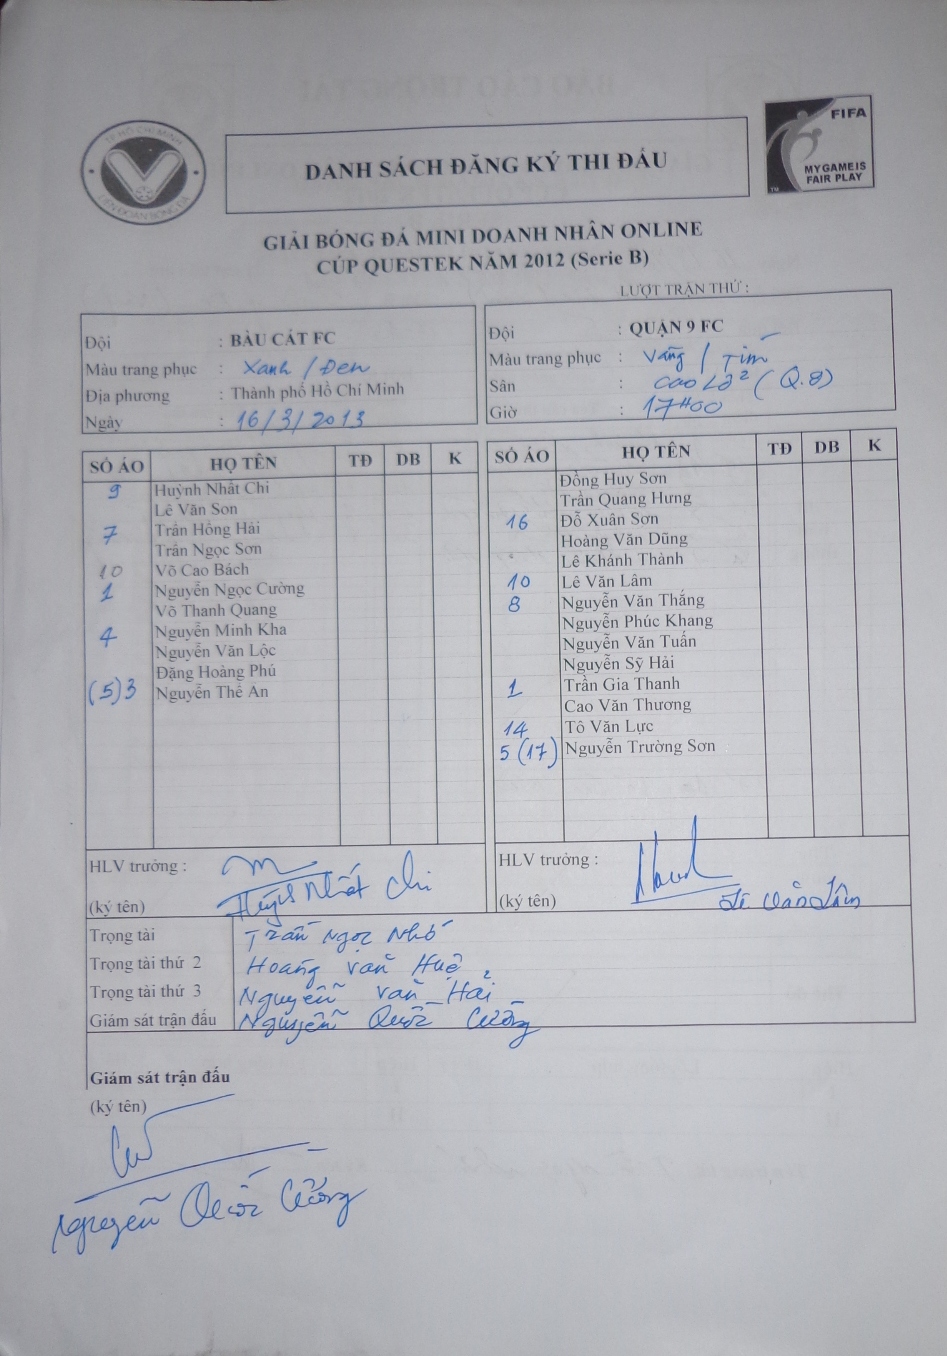 TP HỒ CHÍ MINH
LIÊN ĐOÀN BÓNG ĐÁ
DANH SÁCH ĐĂNG KÝ THI ĐẤU
FIFA
MY GAME IS
FAIR PLAY
TM
GIẢI BÓNG ĐÁ MINI DOANH NHÂN ONLINE
CÚP QUESTEK NĂM 2012 (Serie B)
LƯỢT TRẬN THỨ :
Đội : BÀU CÁT FC
Màu trang phục : Xanh / Đen
Địa phương : Thành phố Hồ Chí Minh
Ngày : 16/3/2013
Đội : QUẬN 9 FC
Màu trang phục : Vàng / Tím
Sân : Cao Lỗ 2 (Q.8)
Giờ : 17H00
SỐ ÁO HỌ TÊN TĐ DB K
9 Huỳnh Nhất Chi
Lê Văn Son
7 Trần Hồng Hải
Trần Ngọc Sơn
10 Võ Cao Bách
1 Nguyễn Ngọc Cường
Võ Thanh Quang
4 Nguyễn Minh Kha
Nguyễn Văn Lộc
Đặng Hoàng Phú
(5) 3 Nguyễn Thế An
SỐ ÁO HỌ TÊN TĐ DB K
Đồng Huy Sơn
Trần Quang Hưng
16 Đỗ Xuân Sơn
Hoàng Văn Dũng
Lê Khánh Thành
10 Lê Văn Lâm
8 Nguyễn Văn Thắng
Nguyễn Phúc Khang
Nguyễn Văn Tuấn
Nguyễn Sỹ Hải
1 Trần Gia Thanh
Cao Văn Thương
14 Tô Văn Lực
5 (17) Nguyễn Trường Sơn
HLV trưởng :
(ký tên) Huỳnh Nhất Chi
HLV trưởng :
(ký tên) Lê Văn Lâm
Trọng tài Trần Ngọc Nhớ
Trọng tài thứ 2 Hoàng Văn Huệ
Trọng tài thứ 3 Nguyễn Văn Hải
Giám sát trận đấu Nguyễn Quốc Cường
Giám sát trận đấu
(ký tên)
Nguyễn Quốc Cường